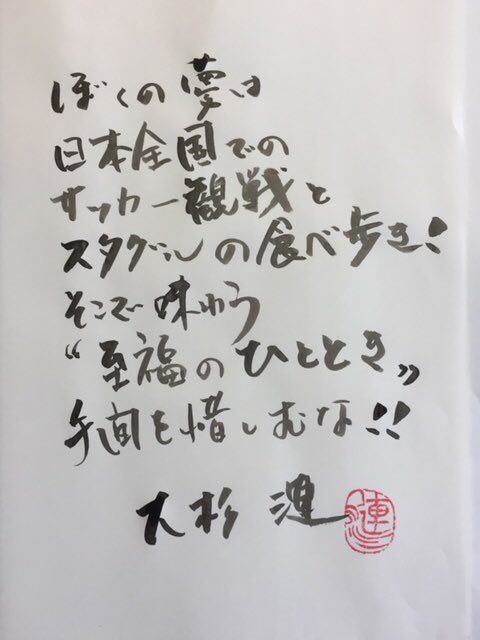 ぼくの夢は
日本全国での
サッカー観戦と
スタグルの食べ歩き!
そこで味わう
“至福のひととき”
手間を惜しむな!!
大杉 漣
漣